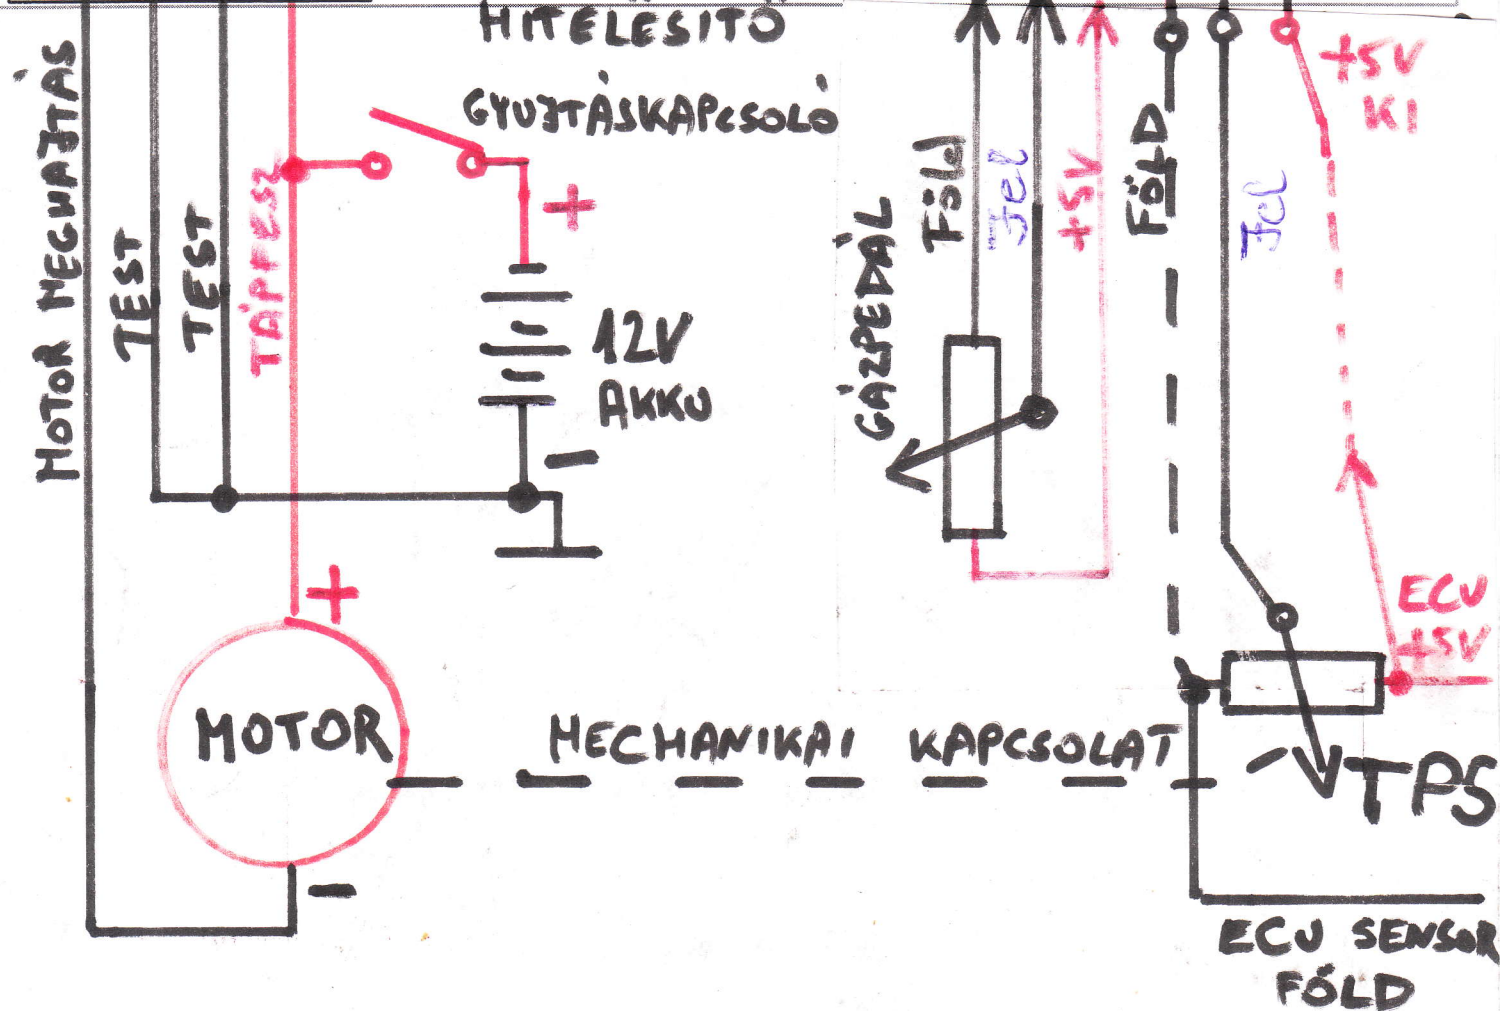 HITELESITŐ
GYUJTÁSKAPCSOLÓ
MOTOR MEGHAJTÁS
TEST
TEST
TÁPFESZ
+
12V
AKKU
-
+
MOTOR
-
MECHANIKAI KAPCSOLAT
GÁZPEDÁL
Föld
Jel
+5V
FÖLD
Jel
+5V
KI
ECU
+5V
TPS
ECU SENSOR
FÖLD